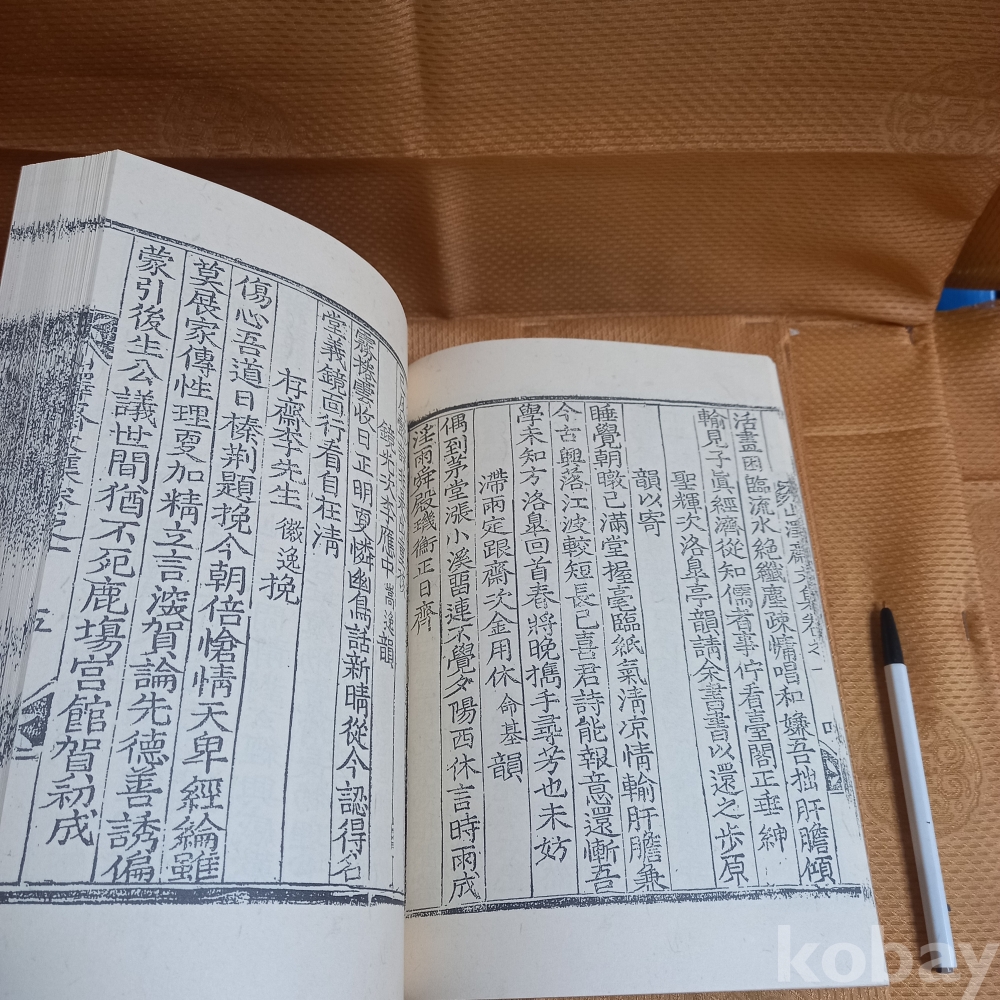 活畫困臨流水絕纖塵疎慵唱和嫌吾拙肝膽傾
輸見子眞經濟從知儒者事佇看臺閣正垂紳
聖輝次洛皐亭韻請余書書以還之步原
韻以寄
睡覺朝暾已滿堂握毫臨紙氣淸凉情輸肝膽兼
今古興落江波較短長已喜君詩能報意還慚吾
學未知方洛皐回首春將晩携手尋芳也未妨
滯雨定跟齋次金用休 命基 韻
偶到茅堂漲小溪留連不覺夕陽西休言時雨成
淫雨舜殿璣衡正日齊
鏡光次李應中 韻
霽後雲收日正明更憐幽鳥話新晴從今認得名
堂義鏡面行看自在淸
存齋李先生 徽逸 挽
傷心吾道日榛荆題挽今朝倍愴情天卑經綸雖
莫展家傳性理更加精立言深賀論先德善誘偏
蒙引後生公議世間猶不死鹿塲宮館賀初成
五
kobay